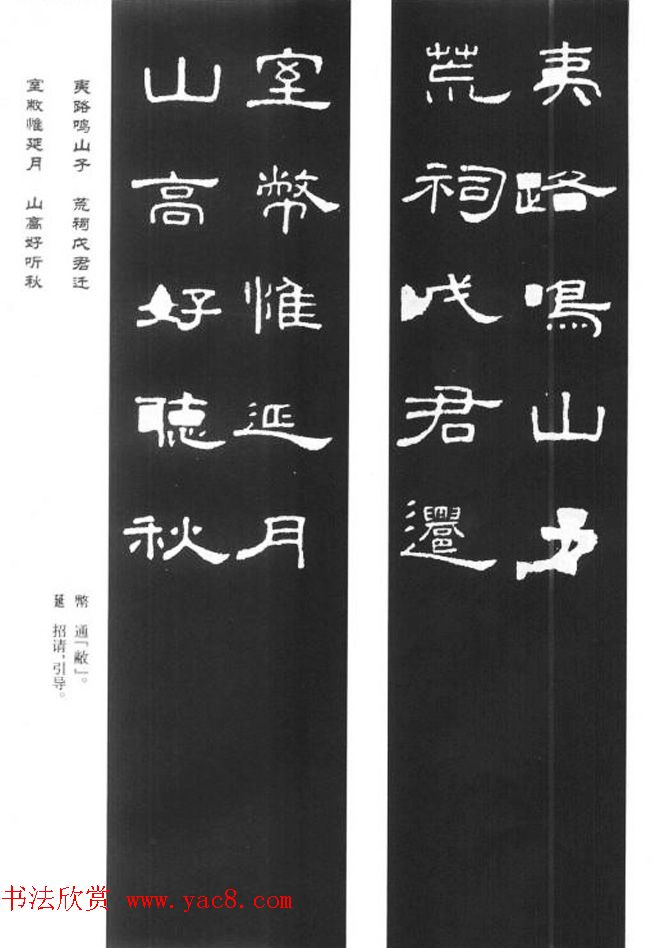 夷路鳴山子
荒祠戊君還
室幣惟延月
山高好聽秋
夷路鸣山子 荒祠戊君迁
室敝惟延月 山高好听秋
幣 通「敝」。
延 招请，引导。
书法欣赏 www.yac8.com